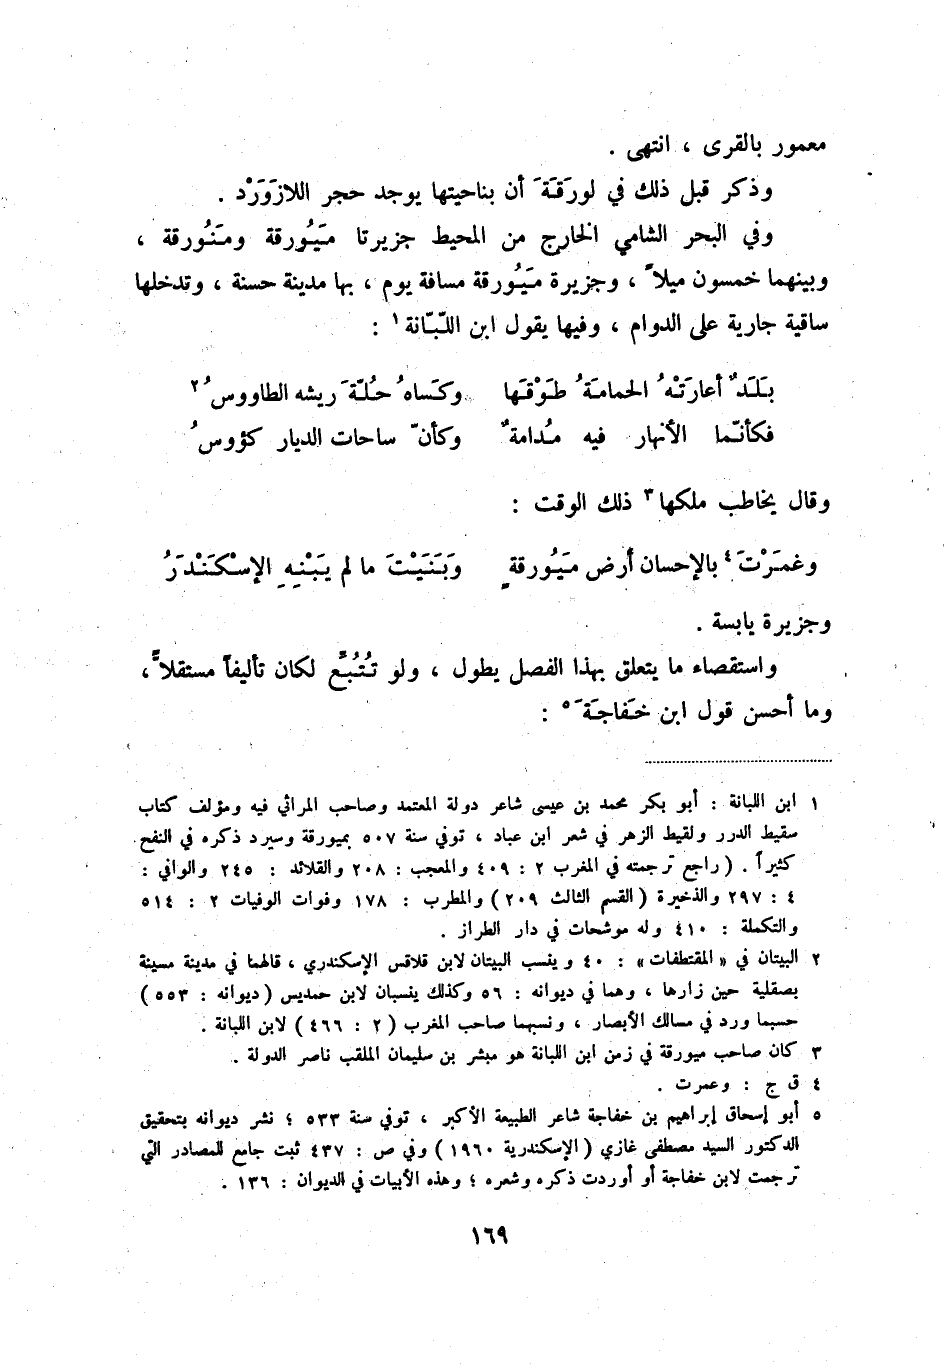 معمور بالقرى ، انتهى .
وذكر قبل ذلك في لورَقَةَ أن بناحيتها يوجد حجر اللازَوَرْد .
وفي البحر الشامي الخارج من المحيط جزيرتا مَيُورقة ومَنُورقة ،
وبينهما خمسون ميلاً ، وجزيرة مَيُورقة مسافة يوم ، بها مدينة حسنة ، وتدخلها
ساقية جارية على الدوام ، وفيها يقول ابن اللّبّانة ١ :
بَلَدٌ أعارَتْهُ الحمامَةُ طَوْقَها وكَساهُ حُلّةَ ريشه الطاووسُ ٢
فكأنّما الأنهار فيه مُدامةٌ وكأنّ ساحات الديار كؤوسُ
وقال يخاطب ملكها ٣ ذلك الوقت :
وغمَرْتَ ٤ بالإحسان أرض مَيُورقةٍ وَبَنَيْتَ ما لم يَبْنِهِ الإسْكَنْدَرُ
وجزيرة يابسة .
واستقصاء ما يتعلق بهذا الفصل يطول ، ولو تُتُبِّع لكان تأليفاً مستقلاًّ ،
وما أحسن قول ابن خَفاجَةَ ٥ :
١ ابن اللبانة : أبو بكر محمد بن عيسى شاعر دولة المعتمد وصاحب المراثي فيه ومؤلف كتاب
سقيط الدرر ولقيط الزهر في شعر ابن عباد ، توفي سنة ٥٠٧ بميورقة وسيرد ذكره في النفح
كثيراً . ( راجع ترجمته في المغرب ٢ : ٤٠٩ والمعجب : ٢٠٨ والقلائد : ٢٤٥ والوافي :
٤ : ٢٩٧ والذخيرة ( القسم الثالث ٢٠٩ ) والمطرب : ١٧٨ وفوات الوفيات ٢ : ٥١٤
والتكملة : ٤١٠ وله موشحات في دار الطراز .
٢ البيتان في « المقتطفات » : ٤٠ وينسب البيتان لابن قلاقس الإسكندري ، قالهما في مدينة مسينة
بصقلية حين زارها ، وهما في ديوانه : ٥٦ وكذلك ينسبان لابن حمديس ( ديوانه : ٥٥٣ )
حسبما ورد في مسالك الأبصار ، ونسبهما صاحب المغرب ( ٢ : ٤٦٦ ) لابن اللبانة .
٣ كان صاحب ميورقة في زمن ابن اللبانة هو مبشر بن سليمان الملقب ناصر الدولة .
٤ ق ج : وعمرت .
٥ أبو إسحاق إبراهيم بن خفاجة شاعر الطبيعة الأكبر ، توفي سنة ٥٣٣ ؛ نشر ديوانه بتحقيق
الدكتور السيد مصطفى غازي ( الإسكندرية ١٩٦٠ ) وفي ص : ٤٣٧ ثبت جامع للمصادر التي
ترجمت لابن خفاجة أو أوردت ذكره وشعره ؛ وهذه الأبيات في الديوان : ١٣٦ .
١٦٩